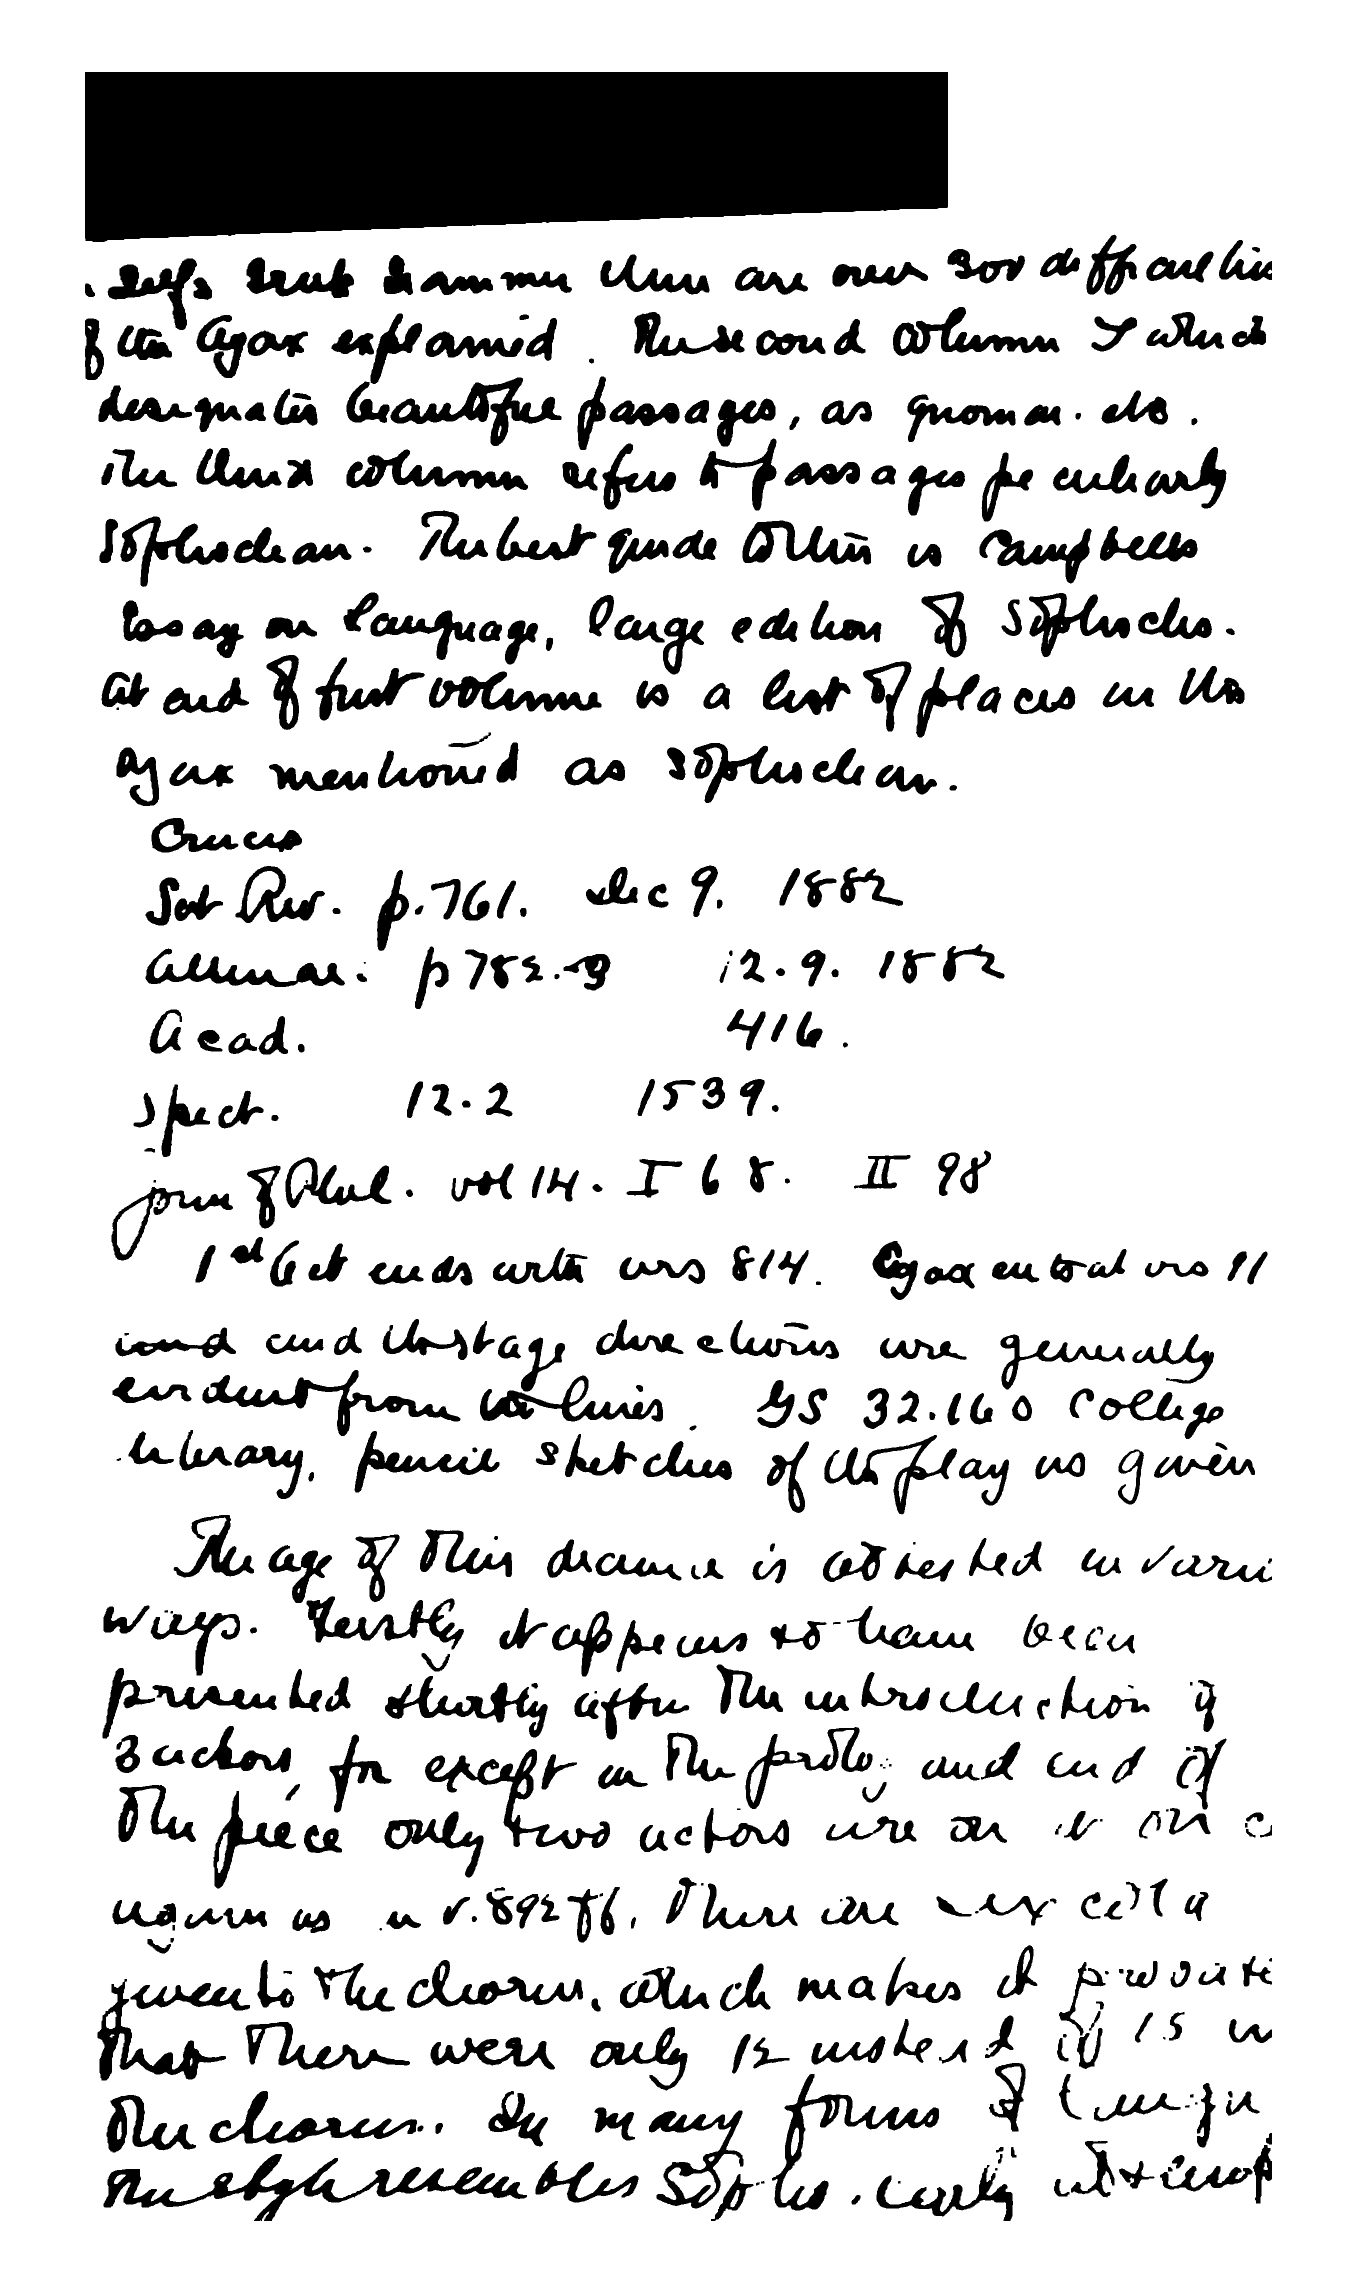 Self's Greek Grammar there are over 300 difficult lin
of the Ajax explained. The second column I which
designates beautiful passages, as gnomai. etc.
The third column refers to passages peculiarly
Sophoclean. The best guide to this is Campbells
Essay on Language, large edition of Sophocles.
At end of first volume is a list of places in the
Ajax mentioned as Sophoclean.
Sat Rev. p. 761. Dec 9. 1882
Athenae. p 782.-3 12.9. 1882
Acad. 416.
Spect. 12.2 1539.
Jour of Phil. vol 14. I 68. II 98
1st Act ends with vrs 814. Ajax enters at vrs 91
and the stage directions are generally
evident from the lines. GS 32.160 College
Library, pencil sketches of the play as given
The age of this drama is attested in vari
ways. Firstly it appears to have been
presented shortly after the introduction of
3 actors, for except in the prolog and end of
the piece only two actors are on it
again as in v. 892 ff. There are
given to the chorus, which makes it
that there were only 12 instead of 15 in
the chorus. In many forms of
the style resembles Sophs. early